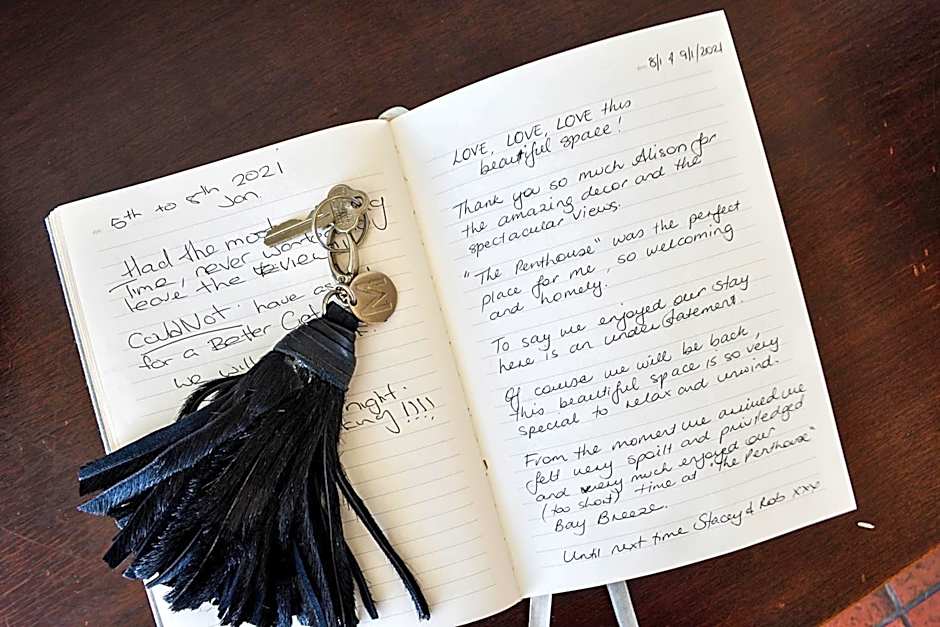 5th to 8th 2021
Jan
Had the most
Time, never wanted
leave the view
COULDNOT have as
for a Better Get
we will
night
!!!!
M
8/1 & 9/1/2021
LOVE, LOVE, LOVE this
beautiful space!
Thank you so much Alison for
the amazing decor and the
spectacular views.
"The Penthouse" was the perfect
place for me, so welcoming
and homely.
To say we enjoyed our stay
here is an understatement.
Of course we will be back,
this beautiful space is so very
special to relax and unwind.
From the moment we arrived we
felt very spoilt and priviledged
and very much enjoyed our
(too short) time at "The Penthouse"
Bay Breeze.
Until next time Stacey & Rob xxx